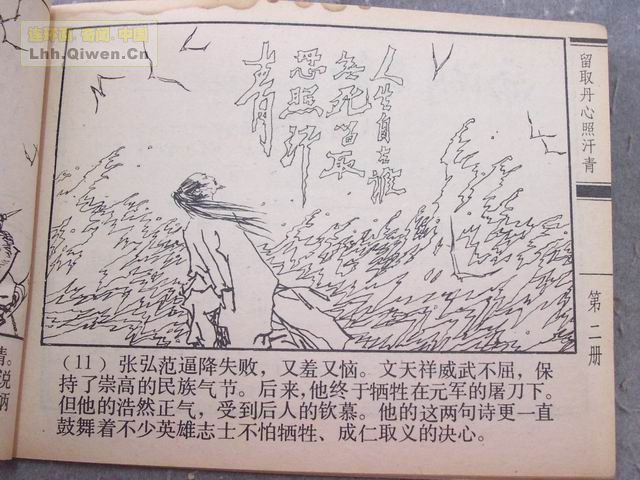 连环画.奇闻.中国
Lhh.Qiwen.Cn
人生自古谁
無死留取
丹心照汗
青
留取丹心照汗青
第二册
(11) 张弘范逼降失败，又羞又恼。文天祥威武不屈，保
持了崇高的民族气节。后来，他终于牺牲在元军的屠刀下。
但他的浩然正气，受到后人的钦慕。他的这两句诗更一直
鼓舞着不少英雄志士不怕牺牲、成仁取义的决心。